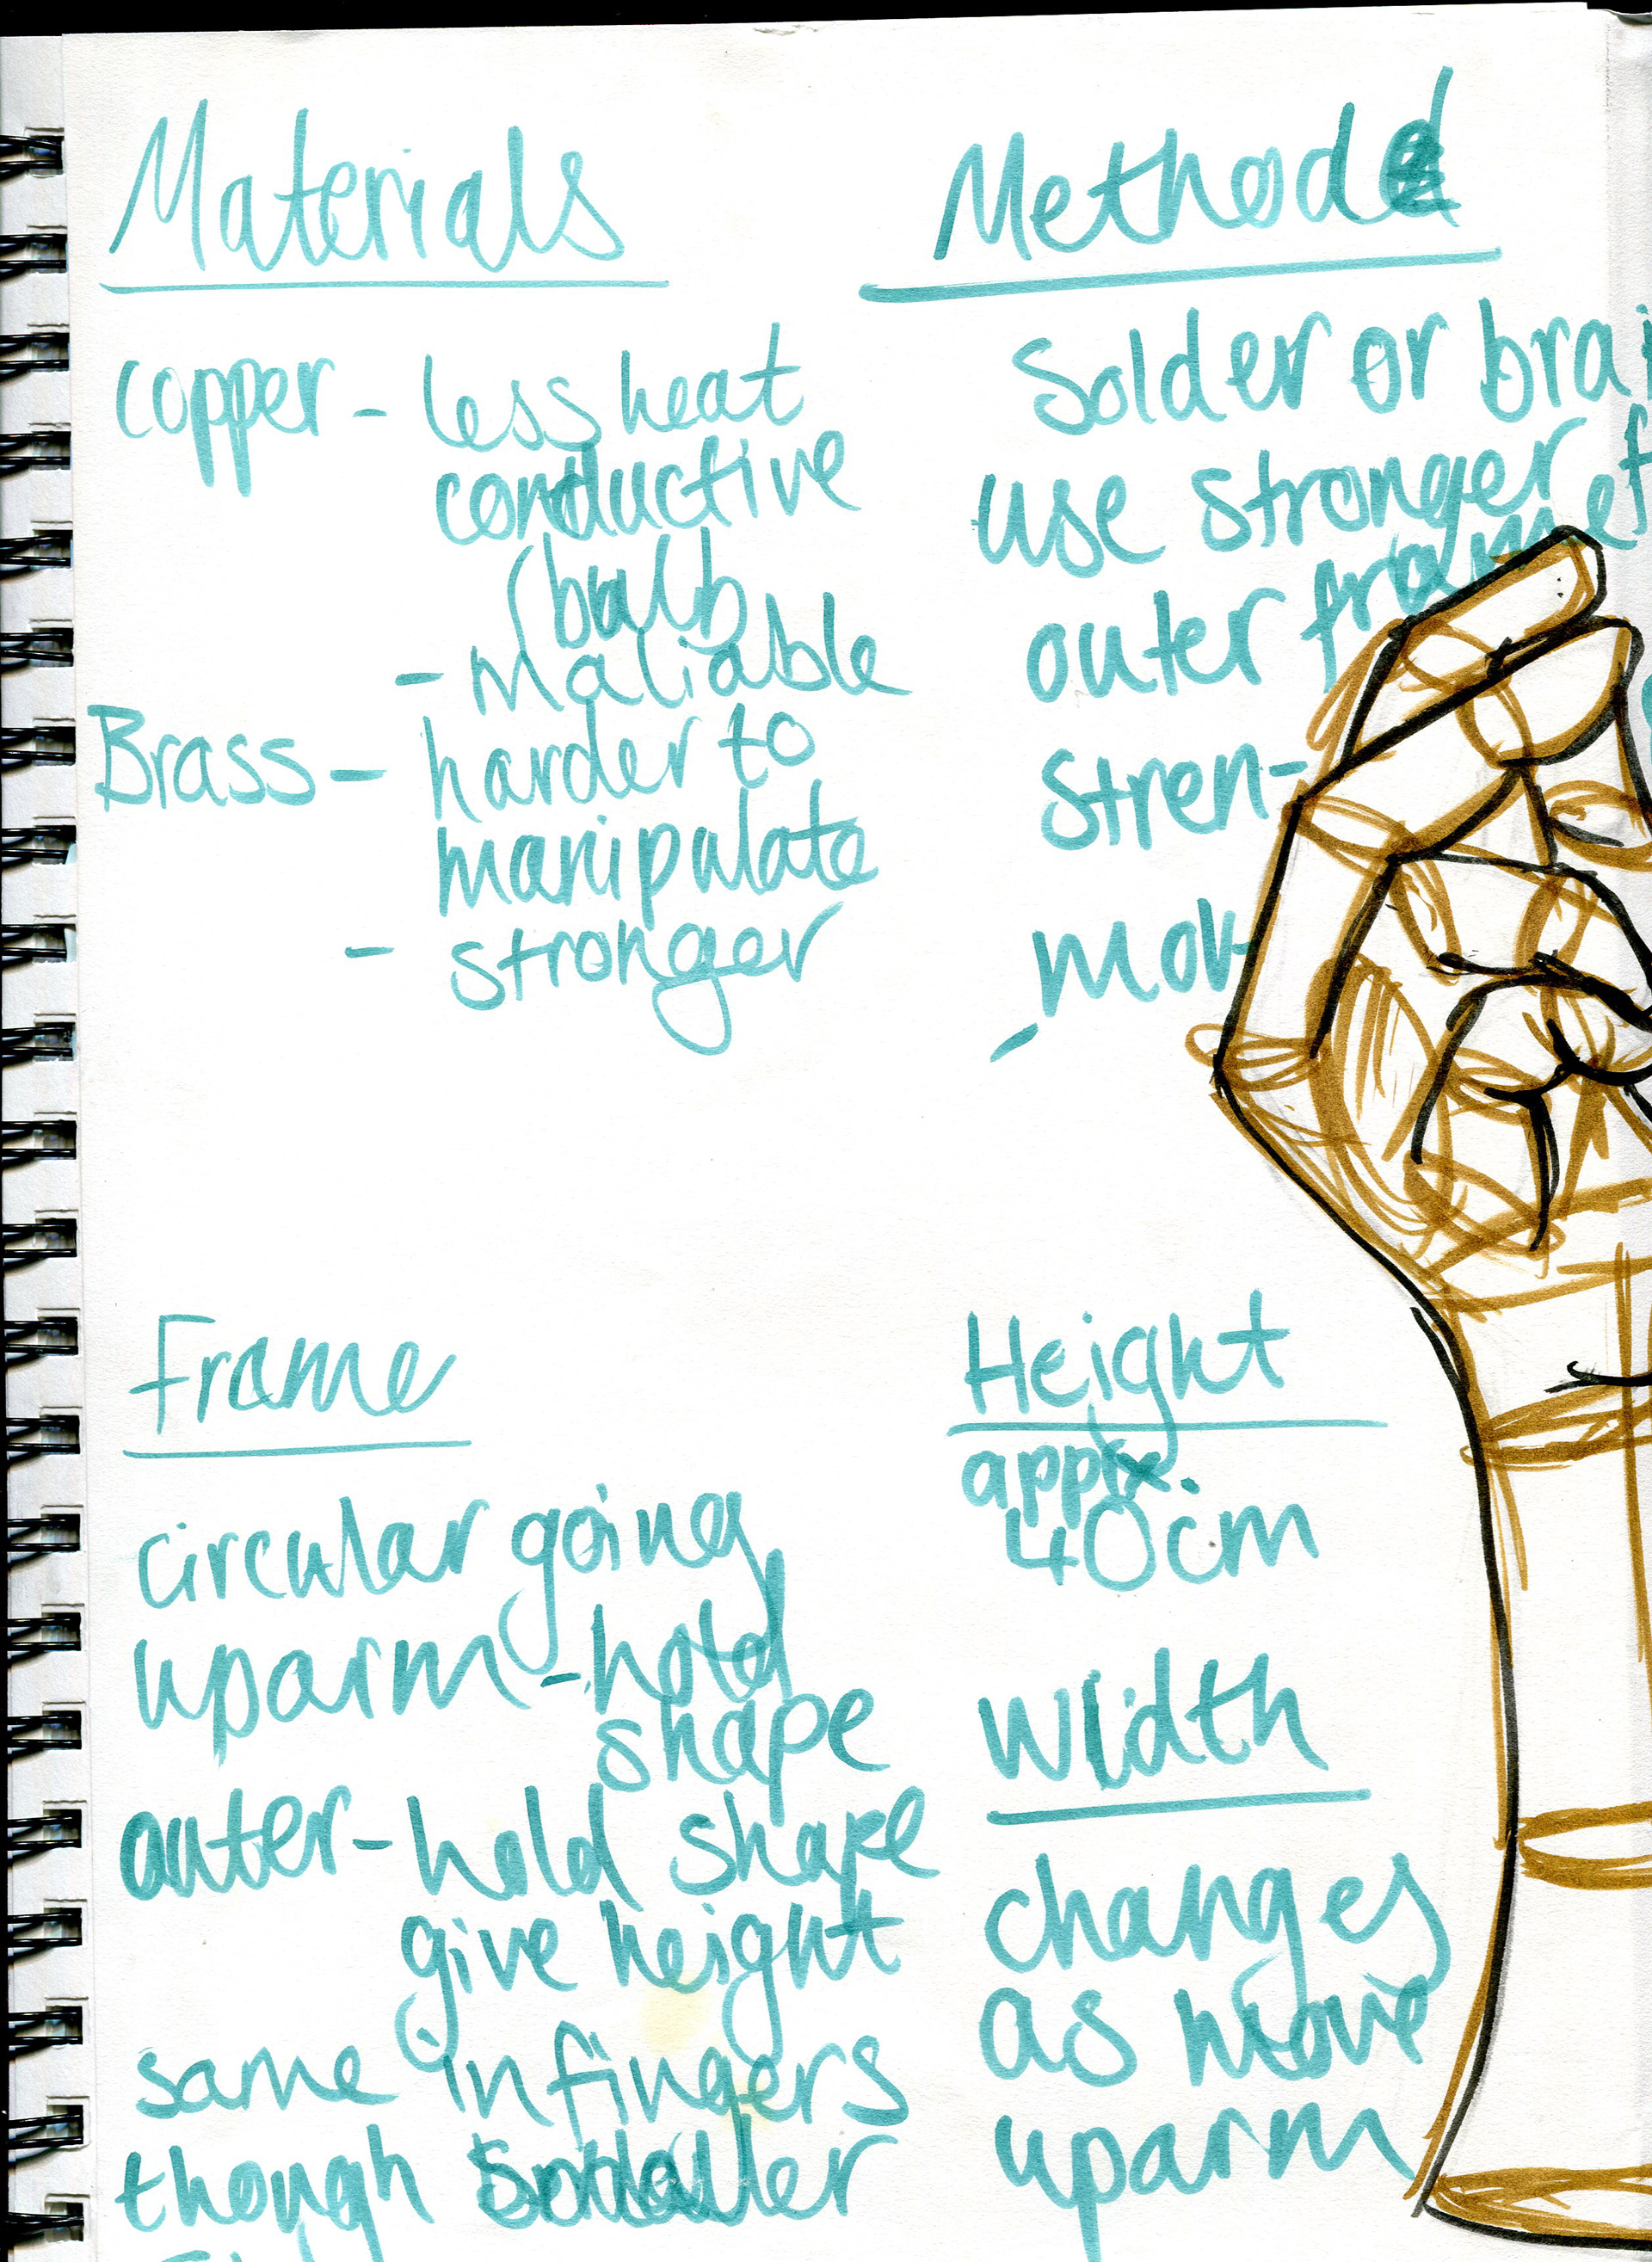 Materials
copper - less heat
conductive
(bulb
- maliable
Brass - harder to
manipulate
- stronger
Method
Solder or bra
use stronger
outer frame
stren-
mov
Frame
circular going
up arm - hold
shape
outer - hold shape
give height
same in fingers
though smaller
Height
apprx.
40cm
Width
changes
as move
up arm